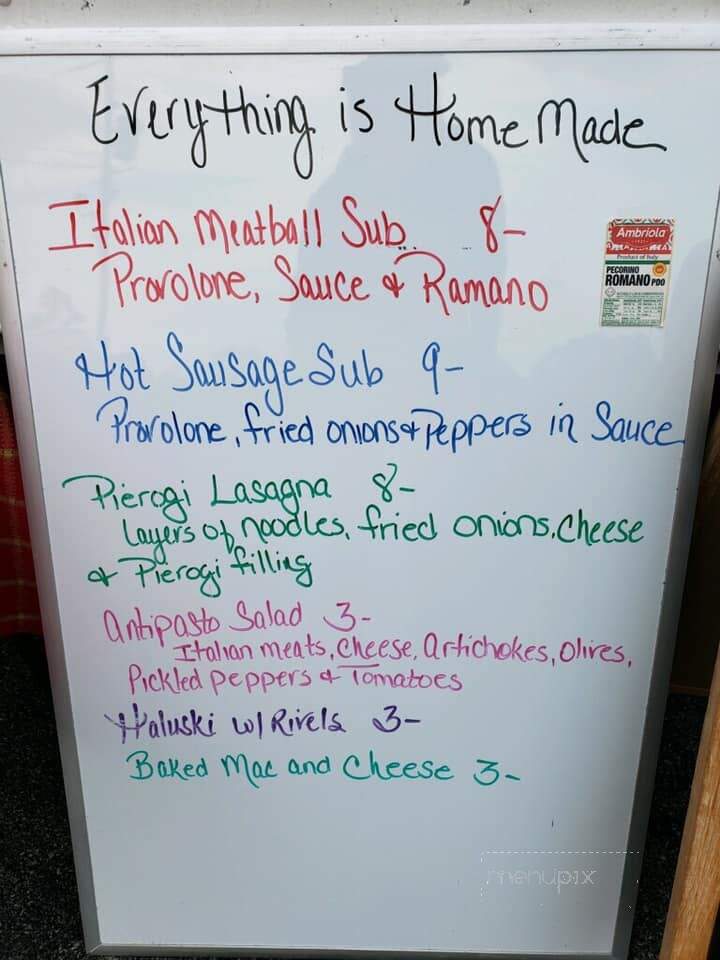 Everything is Home Made
Italian Meatball Sub 8-
Provolone, Sauce & Ramano
Ambriola
Product of Italy
PECORINO
ROMANO PDO
Hot Sausage Sub 9-
Provolone, fried onions & Peppers in Sauce
Pierogi Lasagna 8-
Layers of noodles, fried onions, Cheese
& Pierogi filling
Antipasto Salad 3-
Italian meats, Cheese, Artichokes, Olives,
Pickled peppers & Tomatoes
Haluski w/ Rivels 3-
Baked Mac and Cheese 3-
menupix